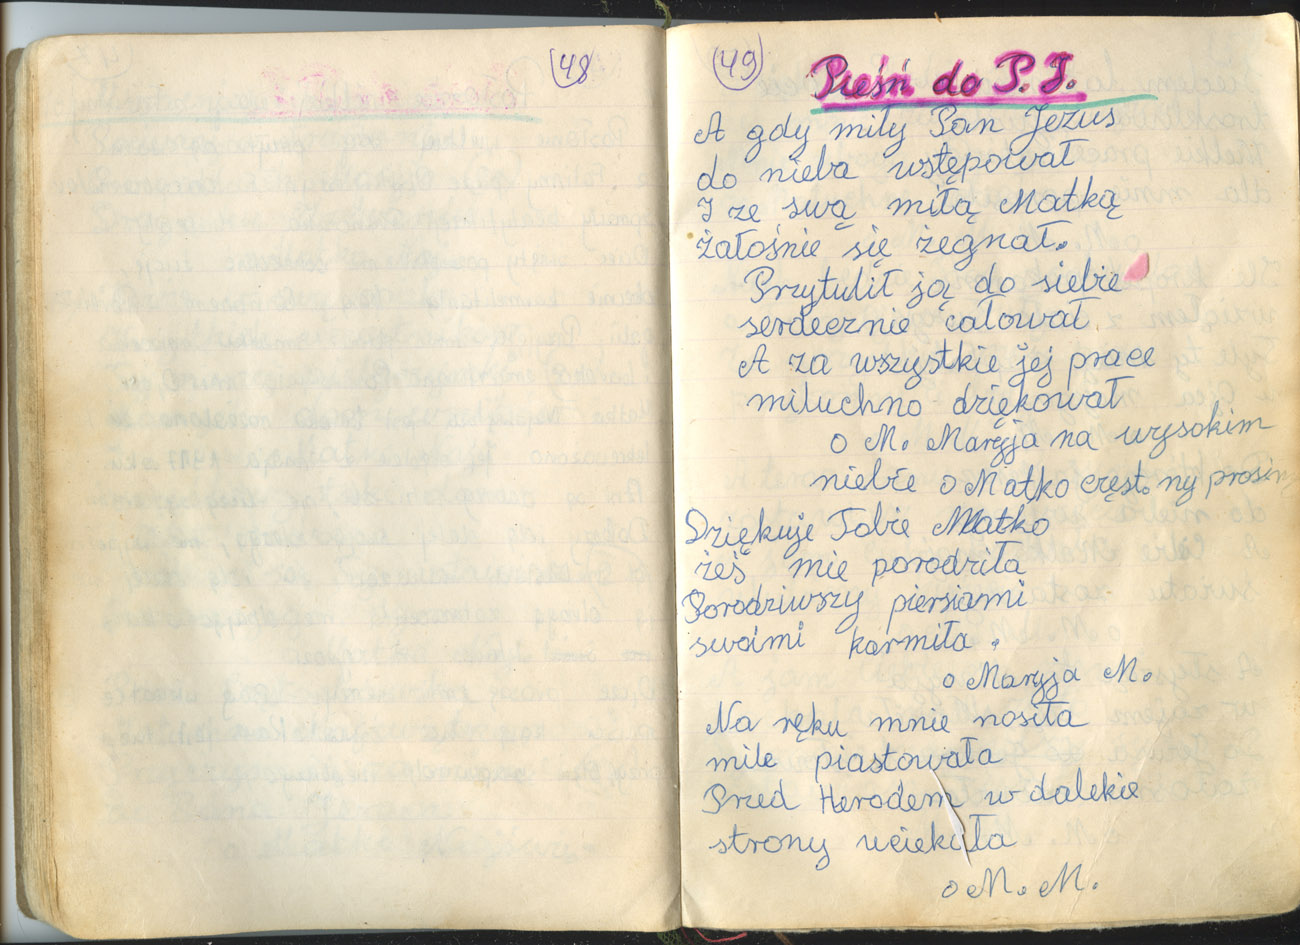 48
49
Pieśń do P. J.
A gdy miły Pan Jezus
do nieba wstępował
I ze swą miłą Matką
żałośnie się żegnał.
Przytulił ją do siebie
serdecznie całował
A za wszystkie jej prace
miluchno dziękował
o M. Maryja na wysokim
niebie o Matko częst. ny prosimy
Dziękuje Tobie Matko
żeś mie porodziła
Porodziwszy piersiami
swoimi karmiła.
o Maryja M.
Na ręku mnie nosiła
mile piastowała
Przed Herodem w dalekie
strony uciekała
o M. M.